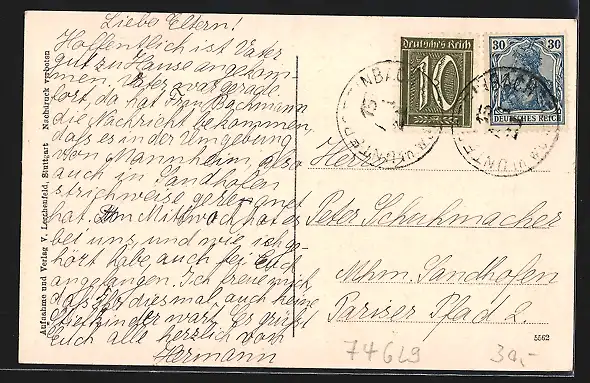 Liebe Eltern!
Hoffentlich ist Vater
gut zu Hause angekom-
men. Vater war gerade
fort, da hat Frau Bachmann
die Nachricht bekommen,
dass es in der Umgebung
von Mannheim, also
auch in Sandhofen
strichweise geregnet
hat. Am Mittwoch, hat es
bei uns, und wie ich ge-
hört habe, auch bei Euch
angefangen. Ich freue mich,
dass Ihr diesmal, auch keine
wart. Es grüßt
Euch alle herzlich von
Hermann
Aufnahme und Verlag V. Lerchenfeld, Stuttgart Nachdruck verboten
Deutsches Reich
10
30 30
DEUTSCHES REICH
Herrn
Peter Schuhmacher
Mhm. Sandhofen
Pariser Pfad 2.
5562
77629
30,-